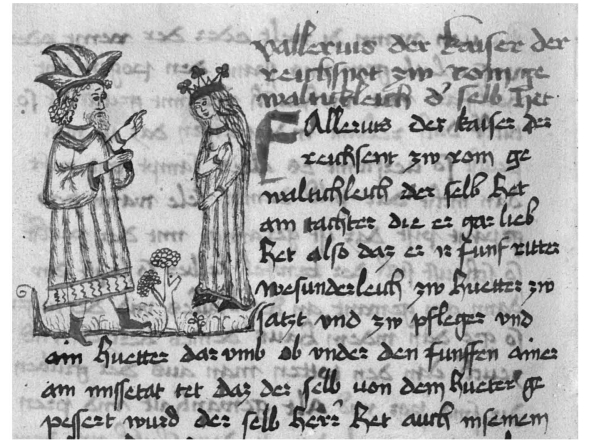 vallerius der kaiser der
reichsnet zw rom ge
waltichleich d' selb het
FAllerius der kaiser der
reichsent zw rom ge
waltichleich der selb het
ain tachter die er gar lieb
het also daz er ir funf ritter
wesunderleich zw huetter zw
satzt vnd zw pfleger vnd
ain huetter darvmb ob vnder den funffen ainer
ain missetat tet daz der selb von dem hueter ge
pessert wurd der selb herr het auch in seinem